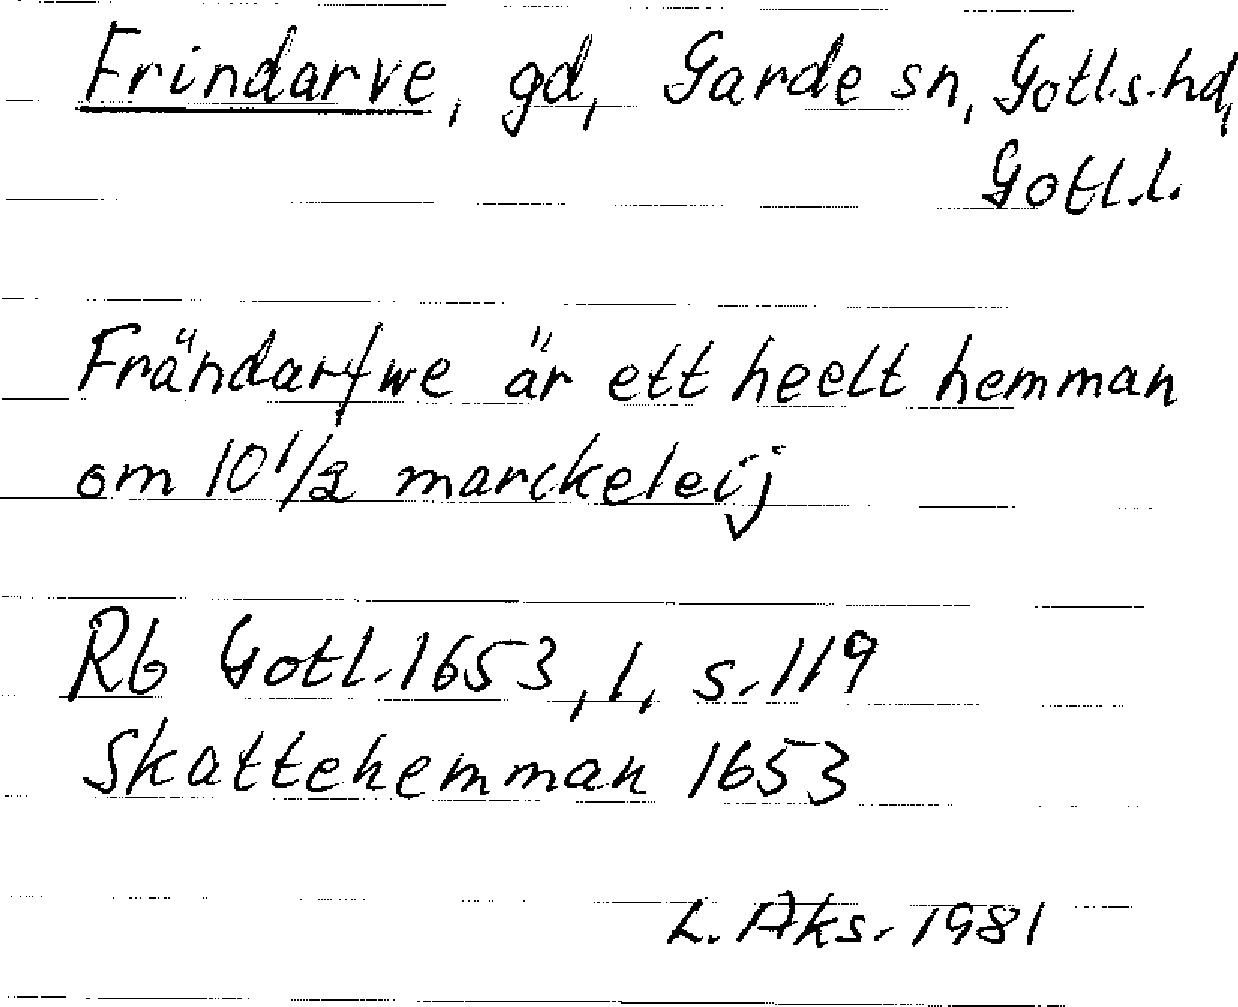 Frindarve, gd, Garde sn, Gotl.s.hd,
Gotl.l.
Frändarfwe är ett heelt hemman
om 10 1/2 marckeleij
Rb Gotl. 1653, 1, s. 119
Skattehemman 1653
L. Aks. 1981